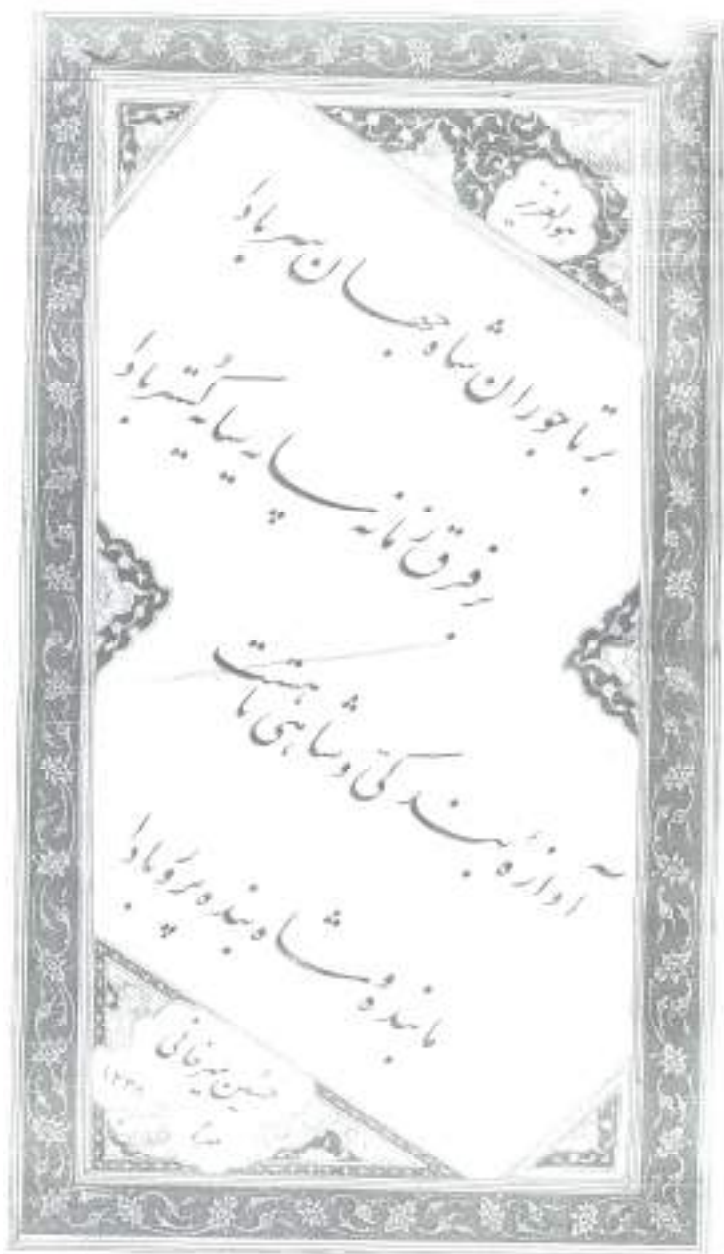 هوالعزیز
بر تاجوران شاه جهان سر بادا
بر فرق زمانه سایه گستر بادا
آوازهٔ بندگی و شاهی تا هست
ما بنده و شاه بنده پرور بادا
حسین میرخانی